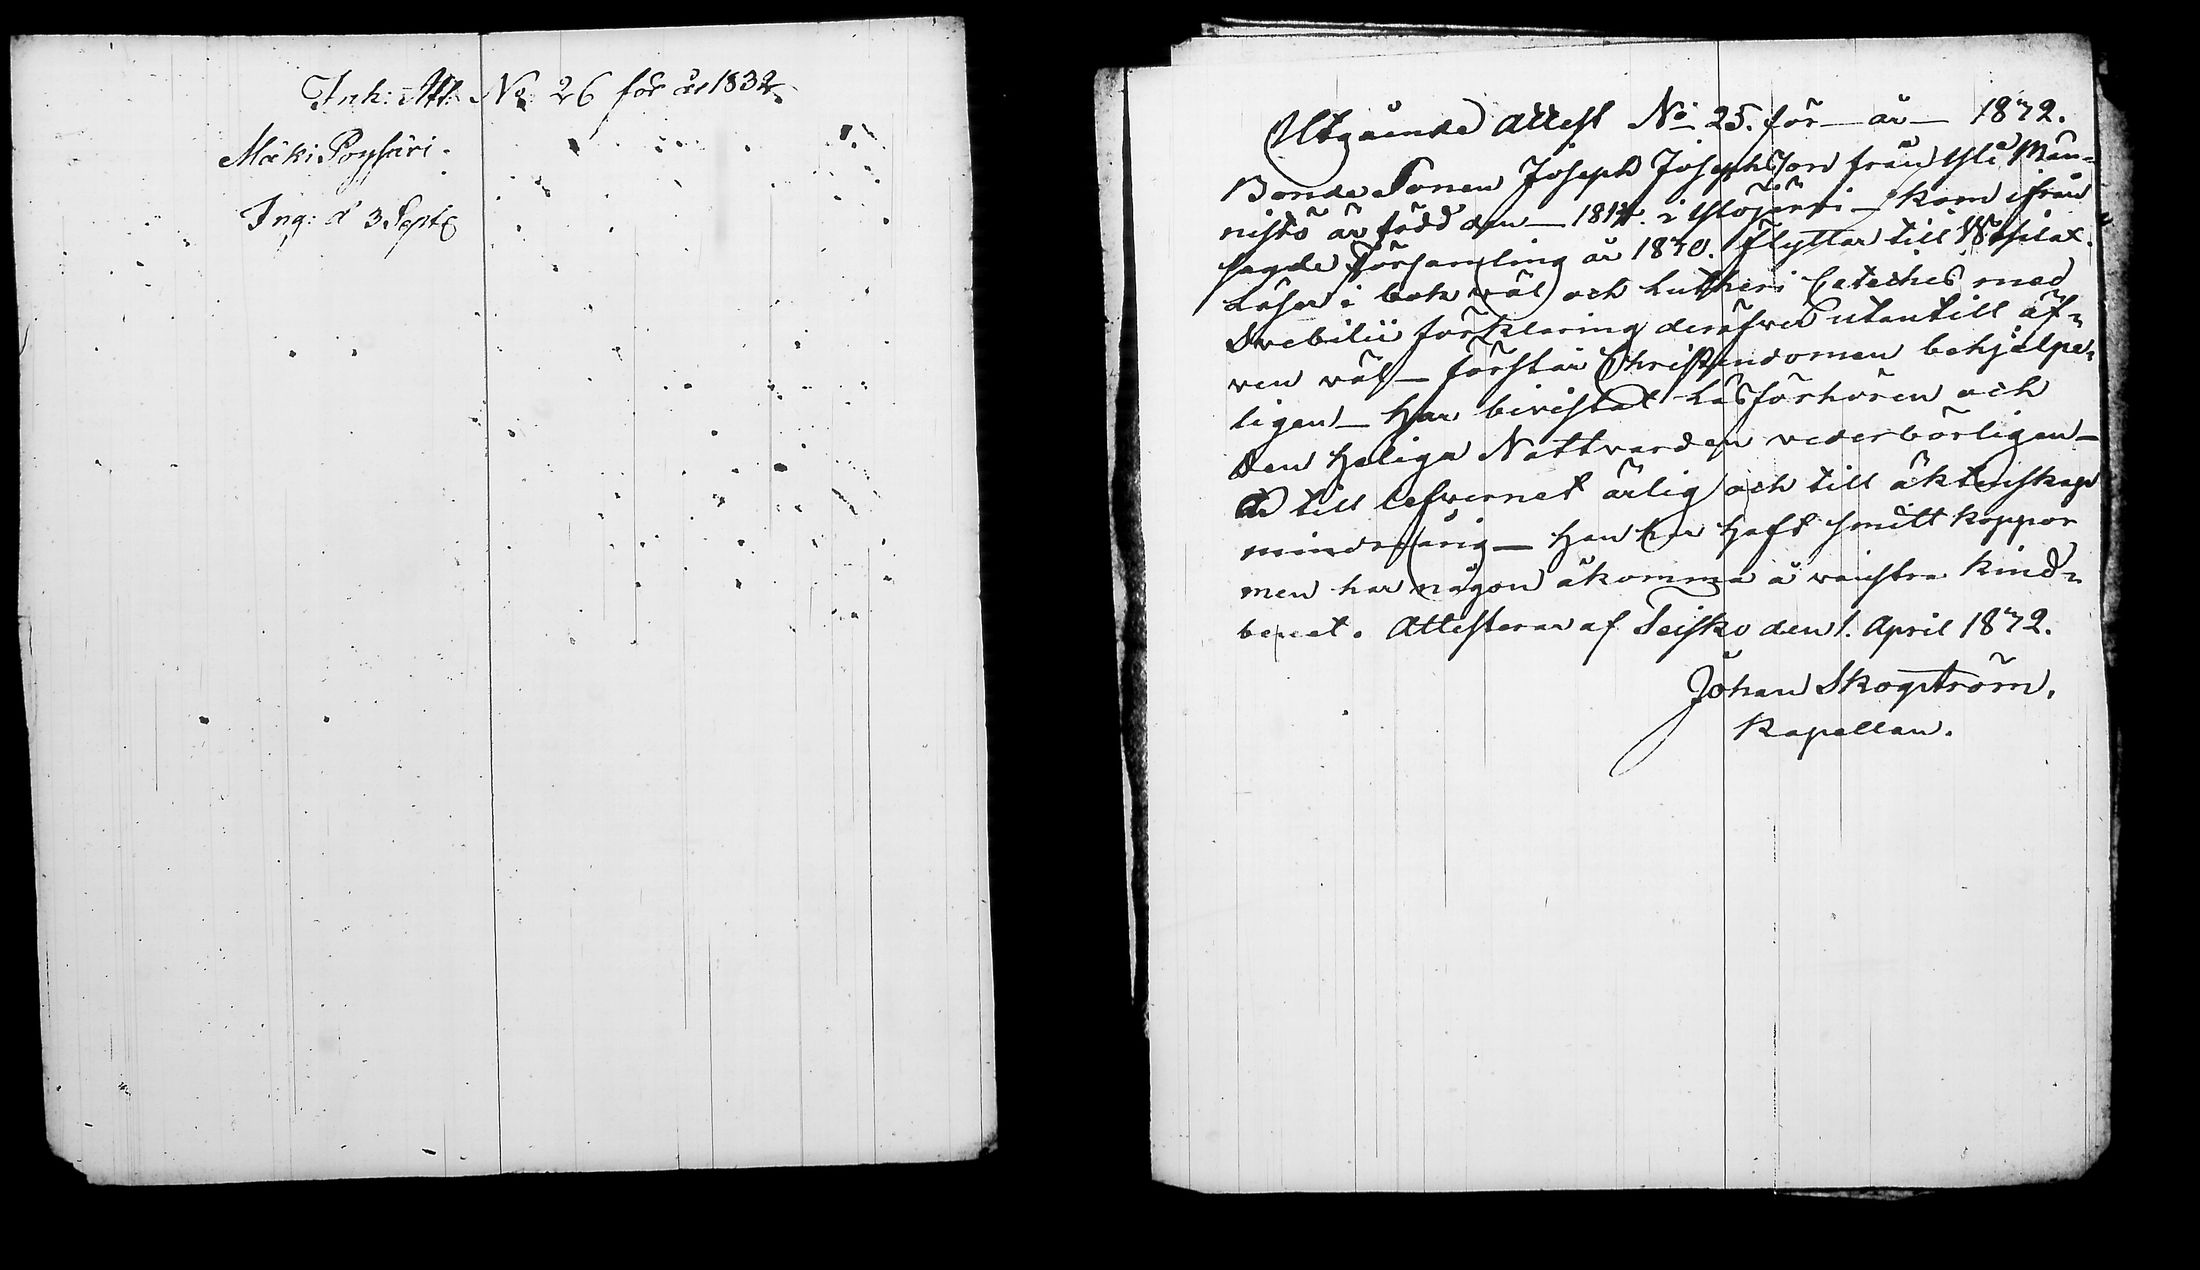 Ink: Att. No 26 för år 1832.
Mäki Poysäri.
Ing: d 3 Sept
Utgående Attest No 25. för — år — 1832.
Bonde Sonen Joseph Josephsson från Yli Män-
nistö är född den — 1814. i Ylöjärvi — kom ifrån
sagde Församling år 1830. Flyttar till
Läser i bok väl och Lutheri Cateches med
Svebilii förklaring deröfver utantill äf-
ven väl — förstår Christendomen behjelpe-
ligen — Har bivistat Läsförhören och
den Heliga Nattvarden vederbörligen —
Är till lefvernet ärlig och till äktenskap
minderårig — Han har haft smitt koppor
men har någon åkomma å vänstra kind-
benet. Attesterar af Teisko den 1. April 1832.
Johan Skogström.
Kapellan.